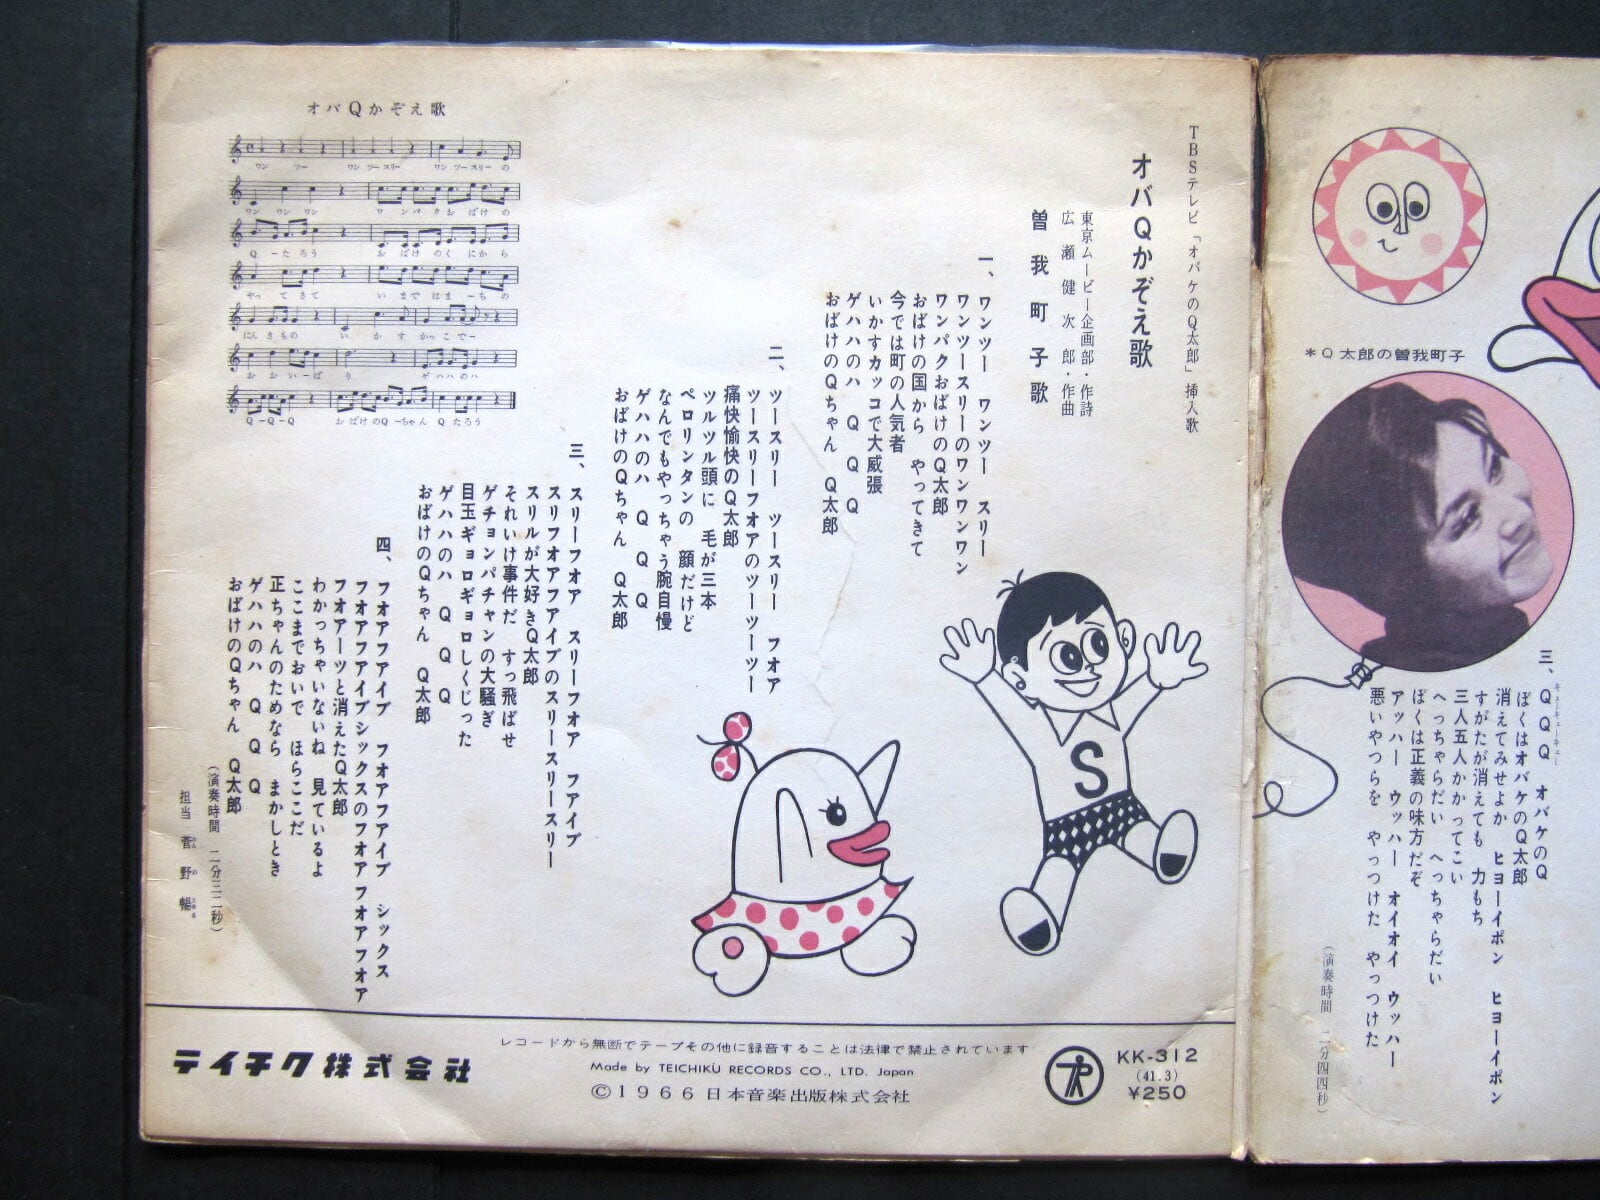 TBSテレビ「オバケのQ太郎」挿入歌
オバQかぞえ歌
東京ムービー企画部・作詩
広瀬健次郎・作曲
曽我町子歌
一、ワンツー ワンツー スリー
ワンツースリーのワンワンワン
ワンパクおばけのQ太郎
おばけの国から やってきて
今では町の人気者
いかすカッコで大威張
ゲハハのハ Q Q Q
おばけのQちゃん Q太郎
二、ツースリー ツースリー フォア
ツースリーフォアのツーツーツー
痛快愉快のQ太郎
ツルツル頭に 毛が三本
ペロリンタンの 顔だけど
なんでもやっちゃう腕自慢
ゲハハのハ Q Q Q
おばけのQちゃん Q太郎
三、スリーフォア スリーフォア ファイブ
スリフォアファイブのスリースリースリー
スリルが大好きQ太郎
それいけ事件だ すっ飛ばせ
ゲチョンパチャンの大騒ぎ
目玉ギョロギョロしくじった
ゲハハのハ Q Q Q
おばけのQちゃん Q太郎
四、フォアファイブ フォアファイブ シックス
フォアファイブシックスのフォアフォアフォア
フォアーツと消えたQ太郎
わかっちゃいないね 見ているよ
ここまでおいで ほらここだ
正ちゃんのためなら まかしとき
ゲハハのハ Q Q Q
おばけのQちゃん Q太郎
(演奏時間 二分三二秒)
担当 菅野 暢
オバQかぞえ歌
ワン ツー ワン ツー スリー ワン ツー スリー の
ワン ワン ワン ワ ン パ ク お ばけ の
Q ー た ろ う お ば け の く に か ら
や っ て き て い ま で は ま ー ち の
に ん き も の い か す か っ こ で ー
お お い ー ば り ゲ ハ ハ の ハ
Q ー Q ー Q お ば け の Q ー ちゃん Q た ろ う
テイチク株式会社
レコードから無断でテープその他に録音することは法律で禁止されています
Made by TEICHIKU RECORDS CO., LTD. Japan
©1966日本音楽出版株式会社
KK-312
(41.3)
¥250
S
*Q太郎の曽我町子
三、Q Q Q オバケのQ
キューキューキュー
ぼくはオバケのQ太郎
消えてみせよか ヒョーイポン ヒョーイポン
すがたが消えても 力もち
三人五人かかってこい
へっちゃらだい へっちゃらだい
ぼくは正義の味方だぞ
アッハー ウッハー オイオイ ウッハー
悪いやつらを やっつけた やっつけた
(演奏時間 二分四四秒)